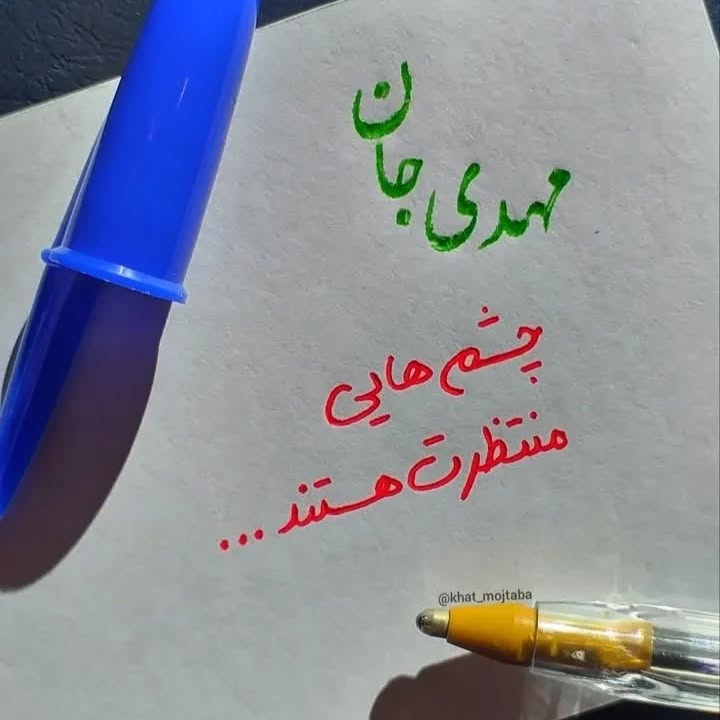 مهدی جان
چشم هایی
منتظرت هستند...
@khat_mojtaba